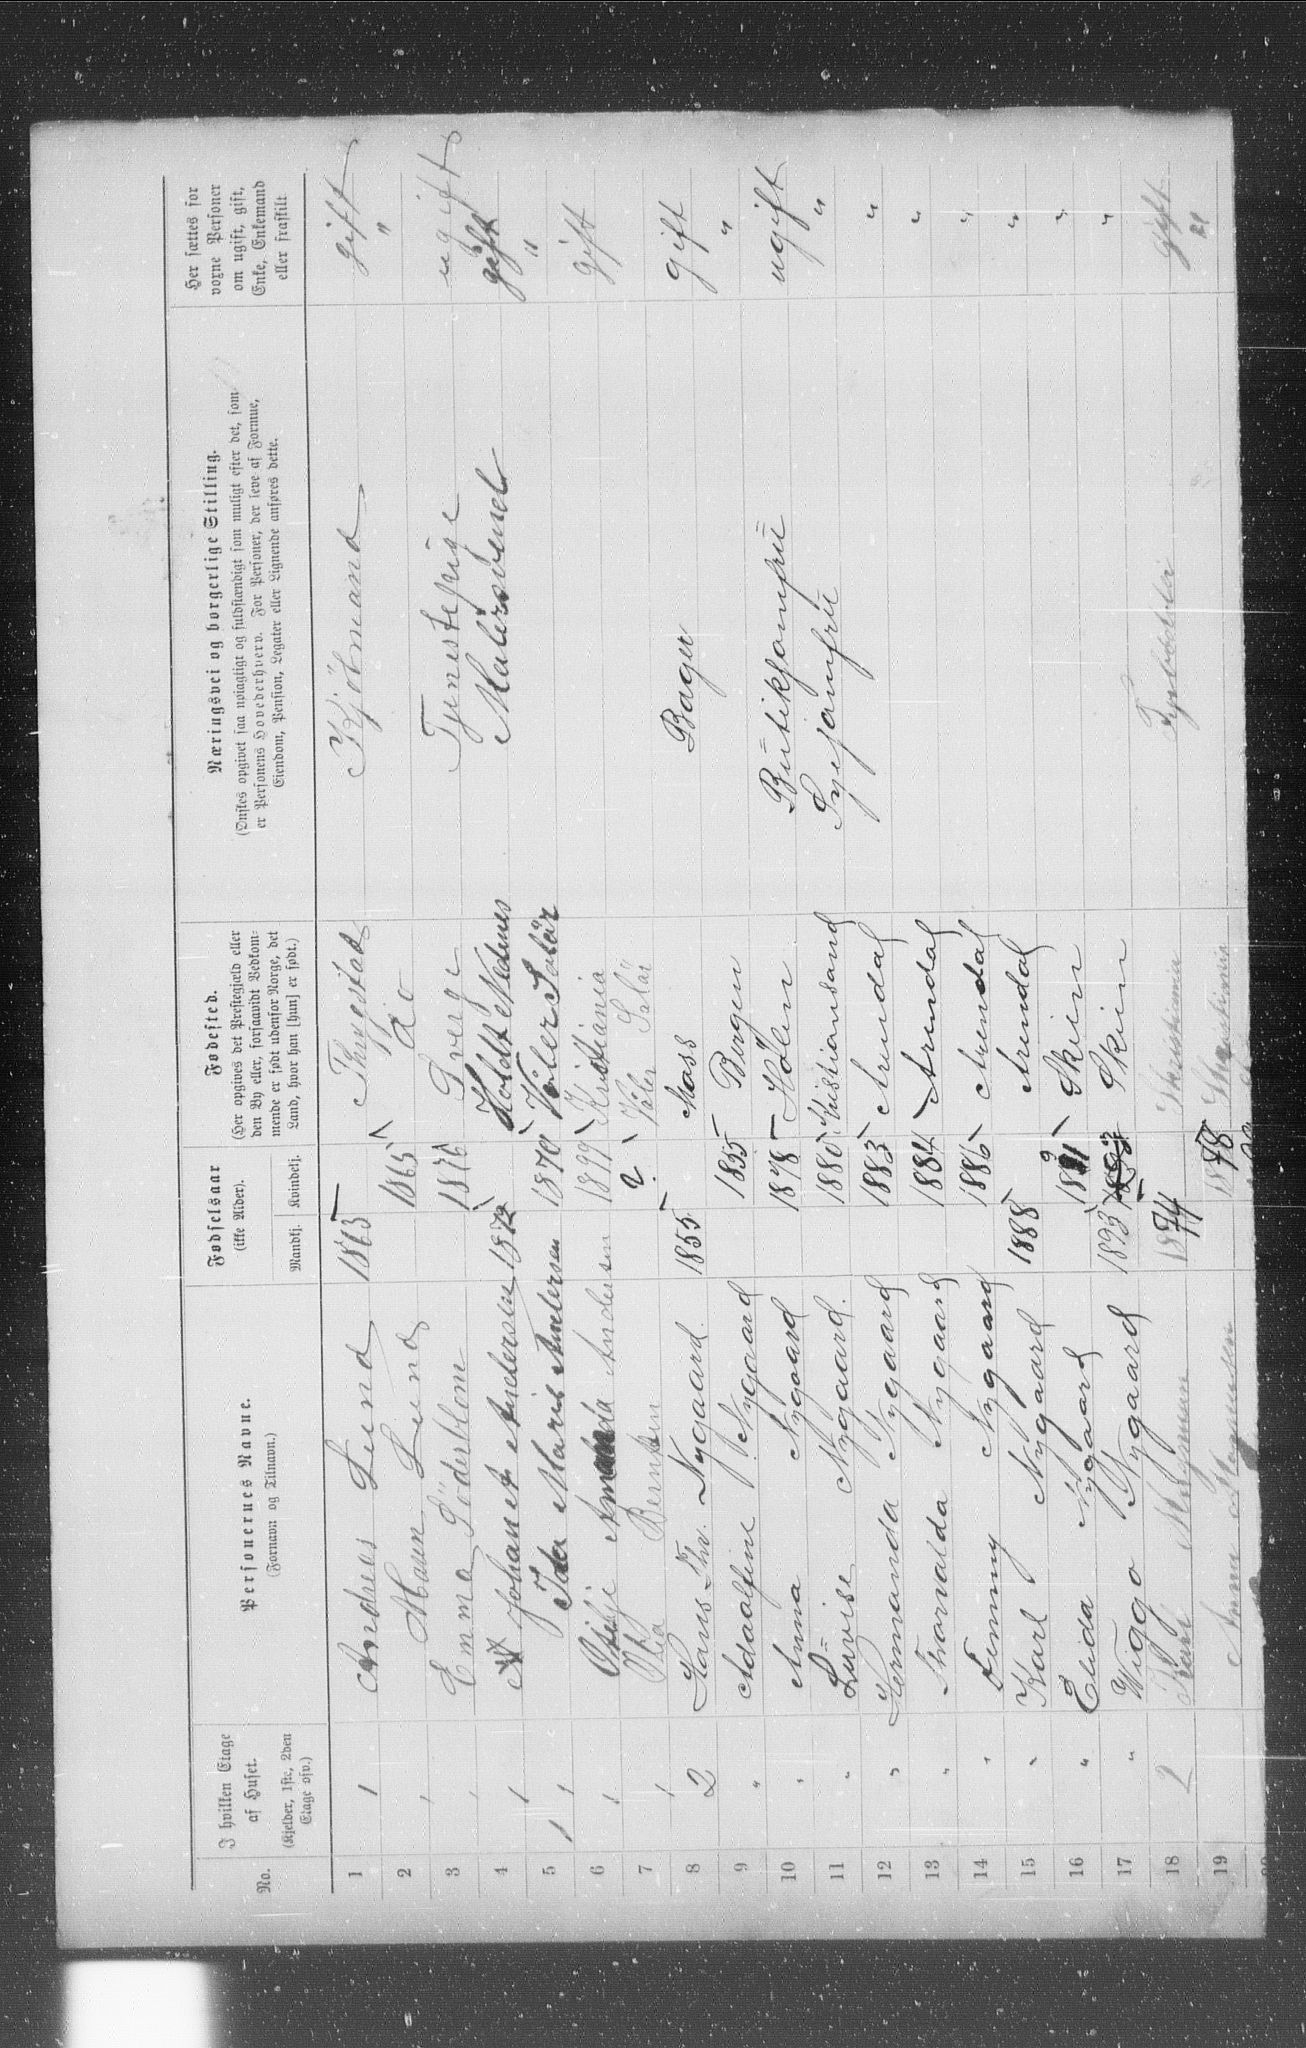 No.
I hvilken Etage af Huset. (Kjelder, 1ste, 2den Etage osv.)
Personernes Navne. (Fornavn og Tilnavn.)
Fødselsaar (ikke Alder). Mandkj. Kvindekj.
Fødested. (Her opgives det Præstegjæld eller den By eller, forsaavidt Vedkommende er født udenfor Norge, det Land, hvor han [hun] er født.)
Næringsvei og borgerlige Stilling. (Ønskes opgivet saa nøiagtigt og fuldstændigt som muligt efter det, som er Personens Hovederhverv. For Personer, der leve af Formue, Eiendom, Pension, Legater eller Lignende anføres dette.
Her sættes for voxne Personer om ugift, gift, Enke, Enkemand eller fraskilt
1 1 Andreas Lund 1863 Thrygstad Kjöbmand gift
2 " Maren Lund 1865 do "
3 " Emma Söderblom 1876 Sverge Tjenestepige ugift
4 " Johanes Andersen 1872 Holdt Nednes Malersvend gift
5 1 Ida Marie Andersen 1870 Våler Solör "
6 " Otilje Amanda Andersen 1899 Kristiania gift
7 " Olia Berntsen Våler Solör
8 2 Hans Thv. Nygaard. 1855 Moss Bager gift
9 " Adaolfine Nygaard 1855 Bergen "
10 " Anna Nygaard 1878 Hölen Butiksjomfru ugift
11 " Lovise Nygaard. 1880 Kristiansand Syejomfru "
12 " Hermanda Nygaard 1883 Arendal "
13 " Thorvalda Nygaard 1884 Arendal "
14 " Femmy Nygaard 1886 Arendal "
15 " Karl Nygaard 1888 Arendal "
16 " Elida Nygaard 1891 Skien "
17 " Wiggo Nygaard 1893 Skien "
18 2 Karl Magnusen 1874 Kristiania gift
19 Anna Magnusen 1878 Kristiania "